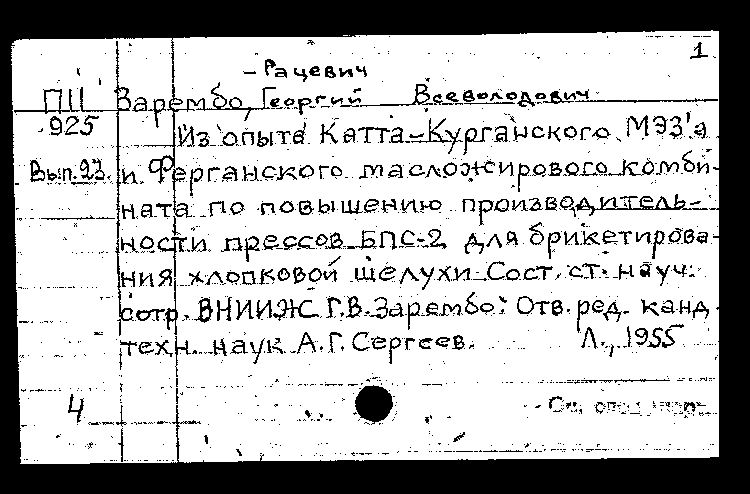 1
-Рацевич
П11 Зарембо, Георгий Всеволодович
925 Из опыта Катта-Курганского МЭЗ'а
Вып.23. и Ферганского масложирового комби-
ната по повышению производитель-
ности прессов БПС-2 для брикетирова-
ния хлопковой шелухи Сост. ст. науч.
сотр. ВНИИЖ Г.В.Зарембо. Отв. ред. канд.
техн. наук А.Г.Сергеев. Л., 1955
4 См.